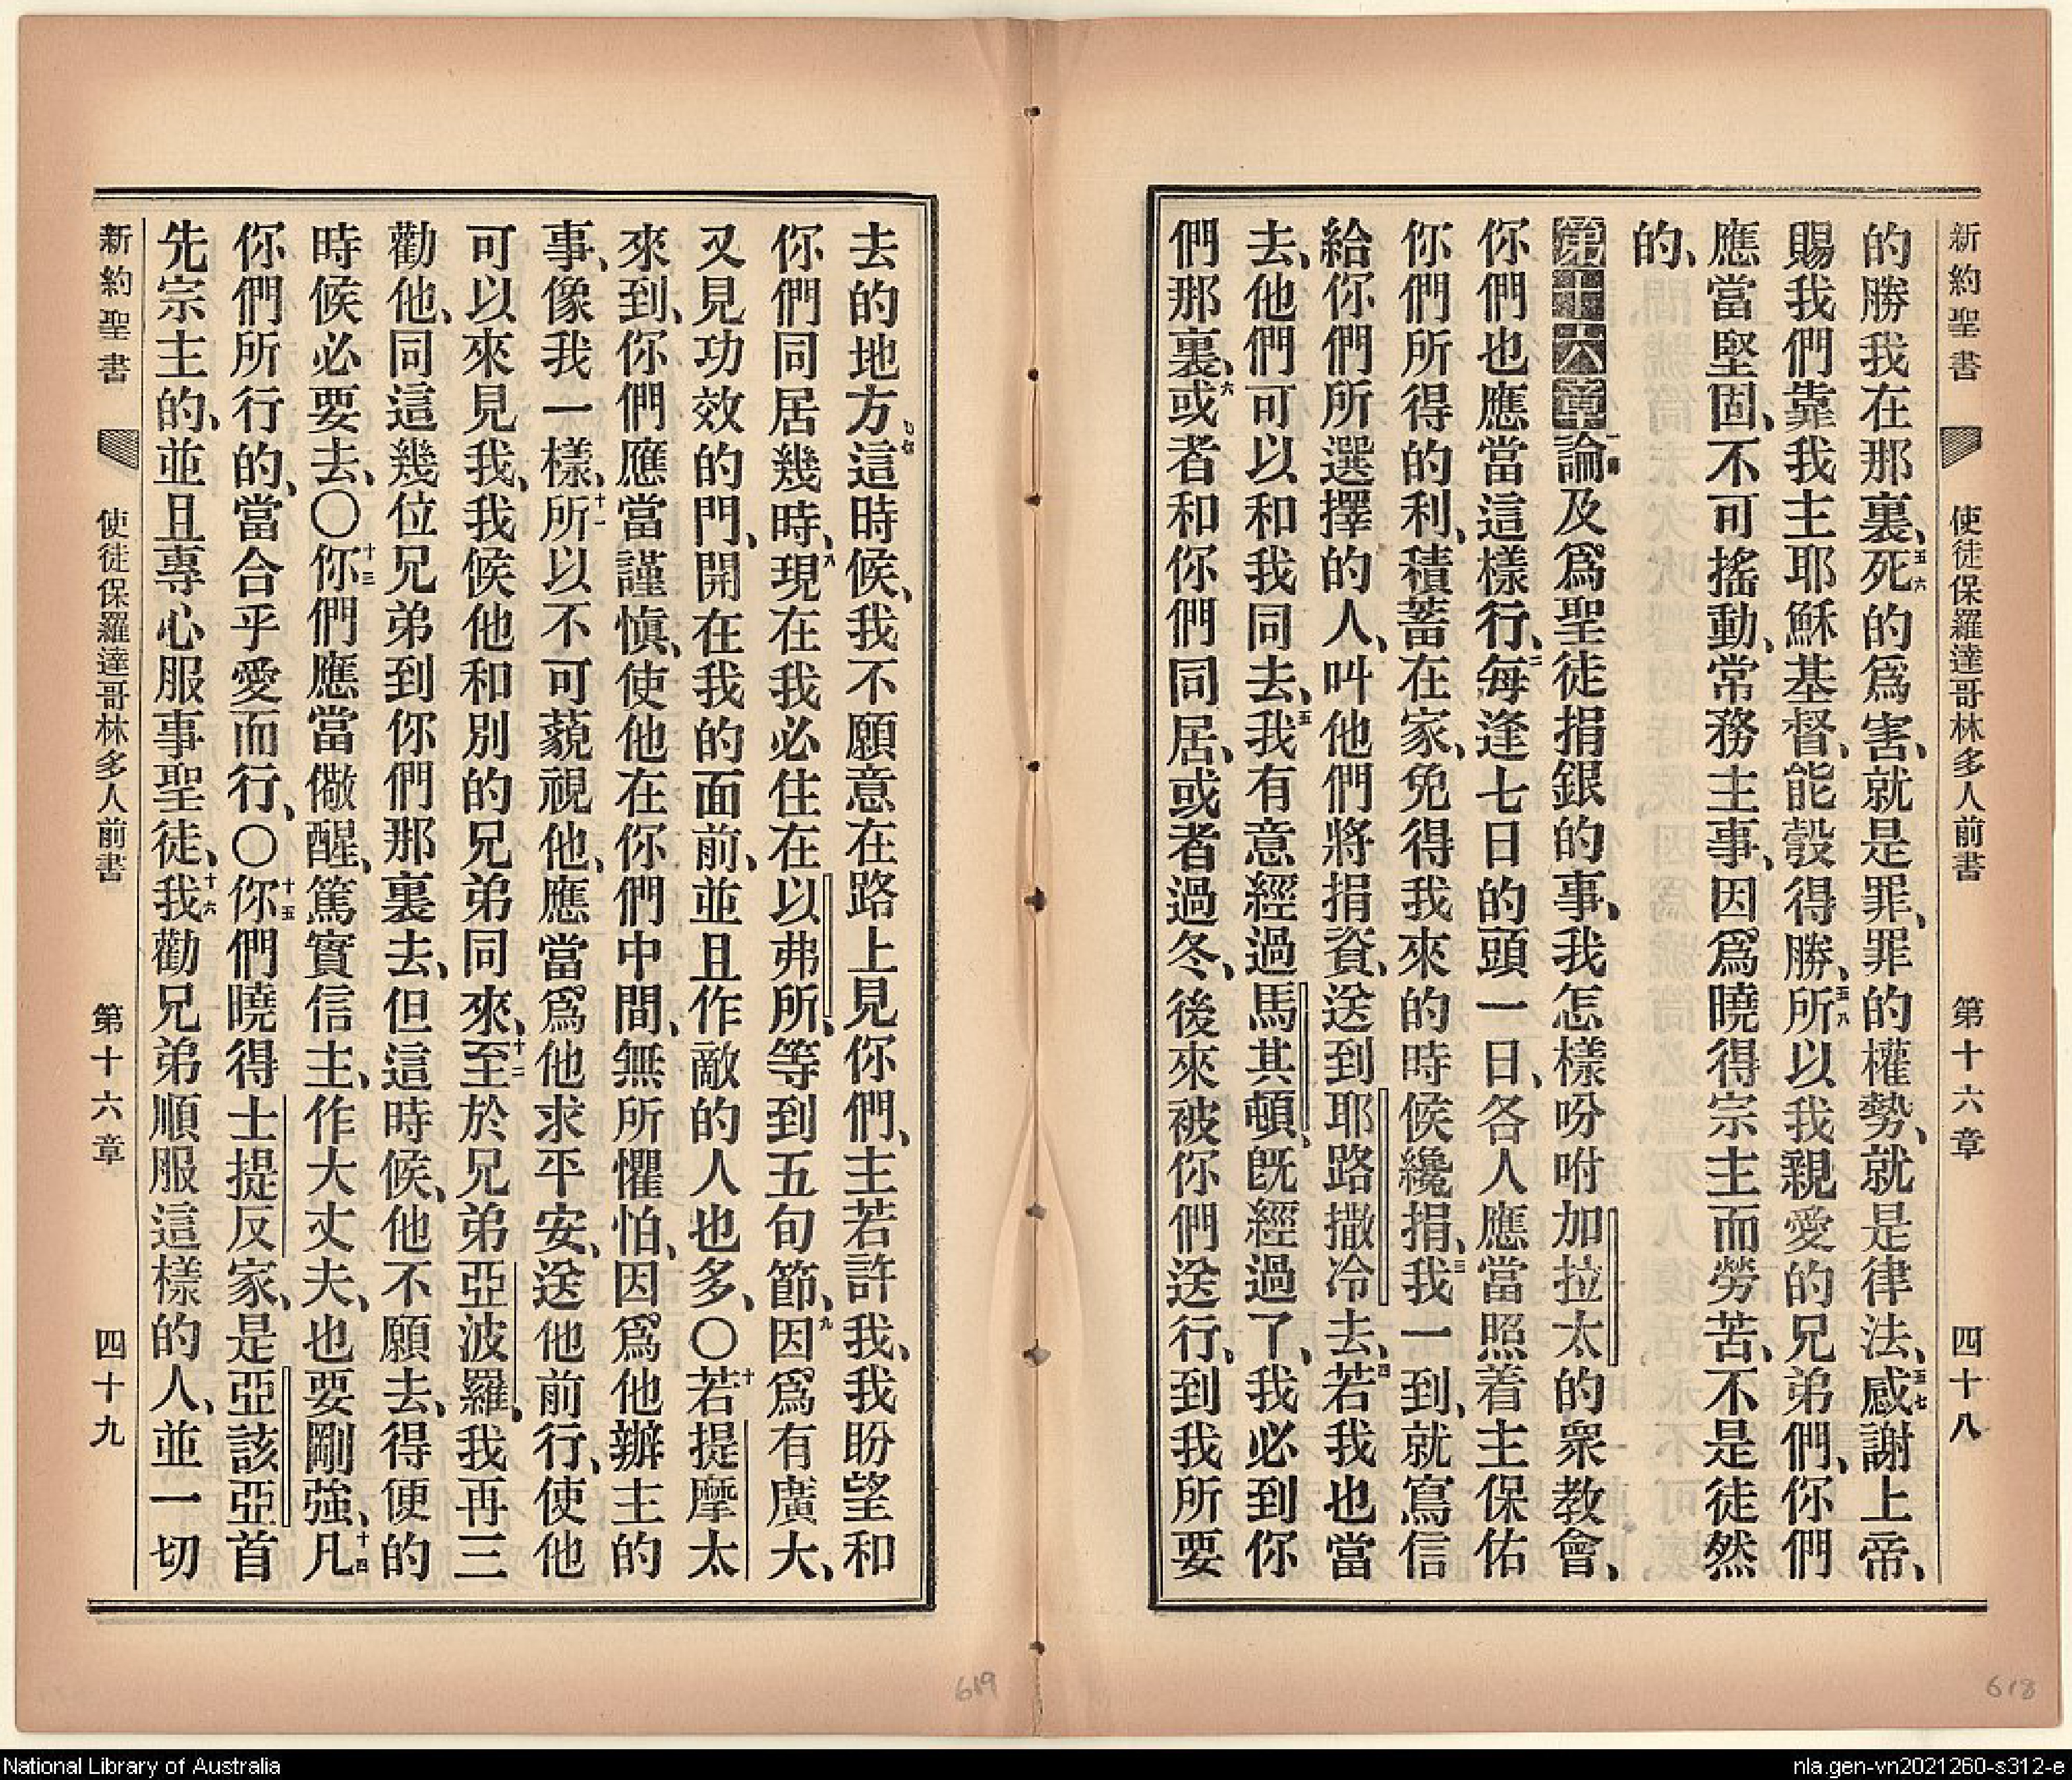 新約聖書 使徒保羅達哥林多人前書 第十六章 四十八
的勝我在那裏、五六死的爲害、就是罪、罪的權勢、就是律法、五七感謝上帝、
賜我們靠我主耶穌基督、能彀得勝、五八所以我親愛的兄弟們、你們
應當堅固、不可搖動、常務主事、因爲曉得宗主而勞苦、不是徒然
的、
第十六章一論及爲聖徒捐銀的事、我怎樣吩咐加拉太的衆教會、
你們也應當這樣行、二每逢七日的頭一日、各人應當照着主保佑
你們所得的利、積蓄在家、免得我來的時候纔捐、三我一到、就寫信
給你們所選擇的人、叫他們將捐資、送到耶路撒冷去、四若我也當
去、他們可以和我同去、五我有意經過馬其頓、旣經過了、我必到你
們那裏、六或者和你們同居、或者過冬、後來被你們送行、到我所要
去的地方七這時候、我不願意在路上見你們、主若許我、我盼望和
你們同居幾時、八現在我必住在以弗所、等到五旬節、九因爲有廣大、
又見功效的門、開在我的面前、並且作敵的人也多、〇十若提摩太
來到、你們應當謹愼、使他在你們中間、無所懼怕、因爲他辦主的
事、像我一樣、十一所以不可藐視他、應當爲他求平安、送他前行、使他
可以來見我、我候他和別的兄弟同來、十二至於兄弟亞波羅、我再三
勸他、同這幾位兄弟到你們那裏去、但這時候、他不願去、得便的
時候必要去、〇十三你們應當儆醒、篤實信主、作大丈夫、也要剛強、十四凡
你們所行的、當合乎愛而行、〇十五你們曉得士提反家、是亞該亞首
先宗主的、並且專心服事聖徒、十六我勸兄弟順服這樣的人、並一切
新約聖書 使徒保羅達哥林多人前書 第十六章 四十九
619
618
National Library of Australia
nla.gen-vn2021260-s312-e